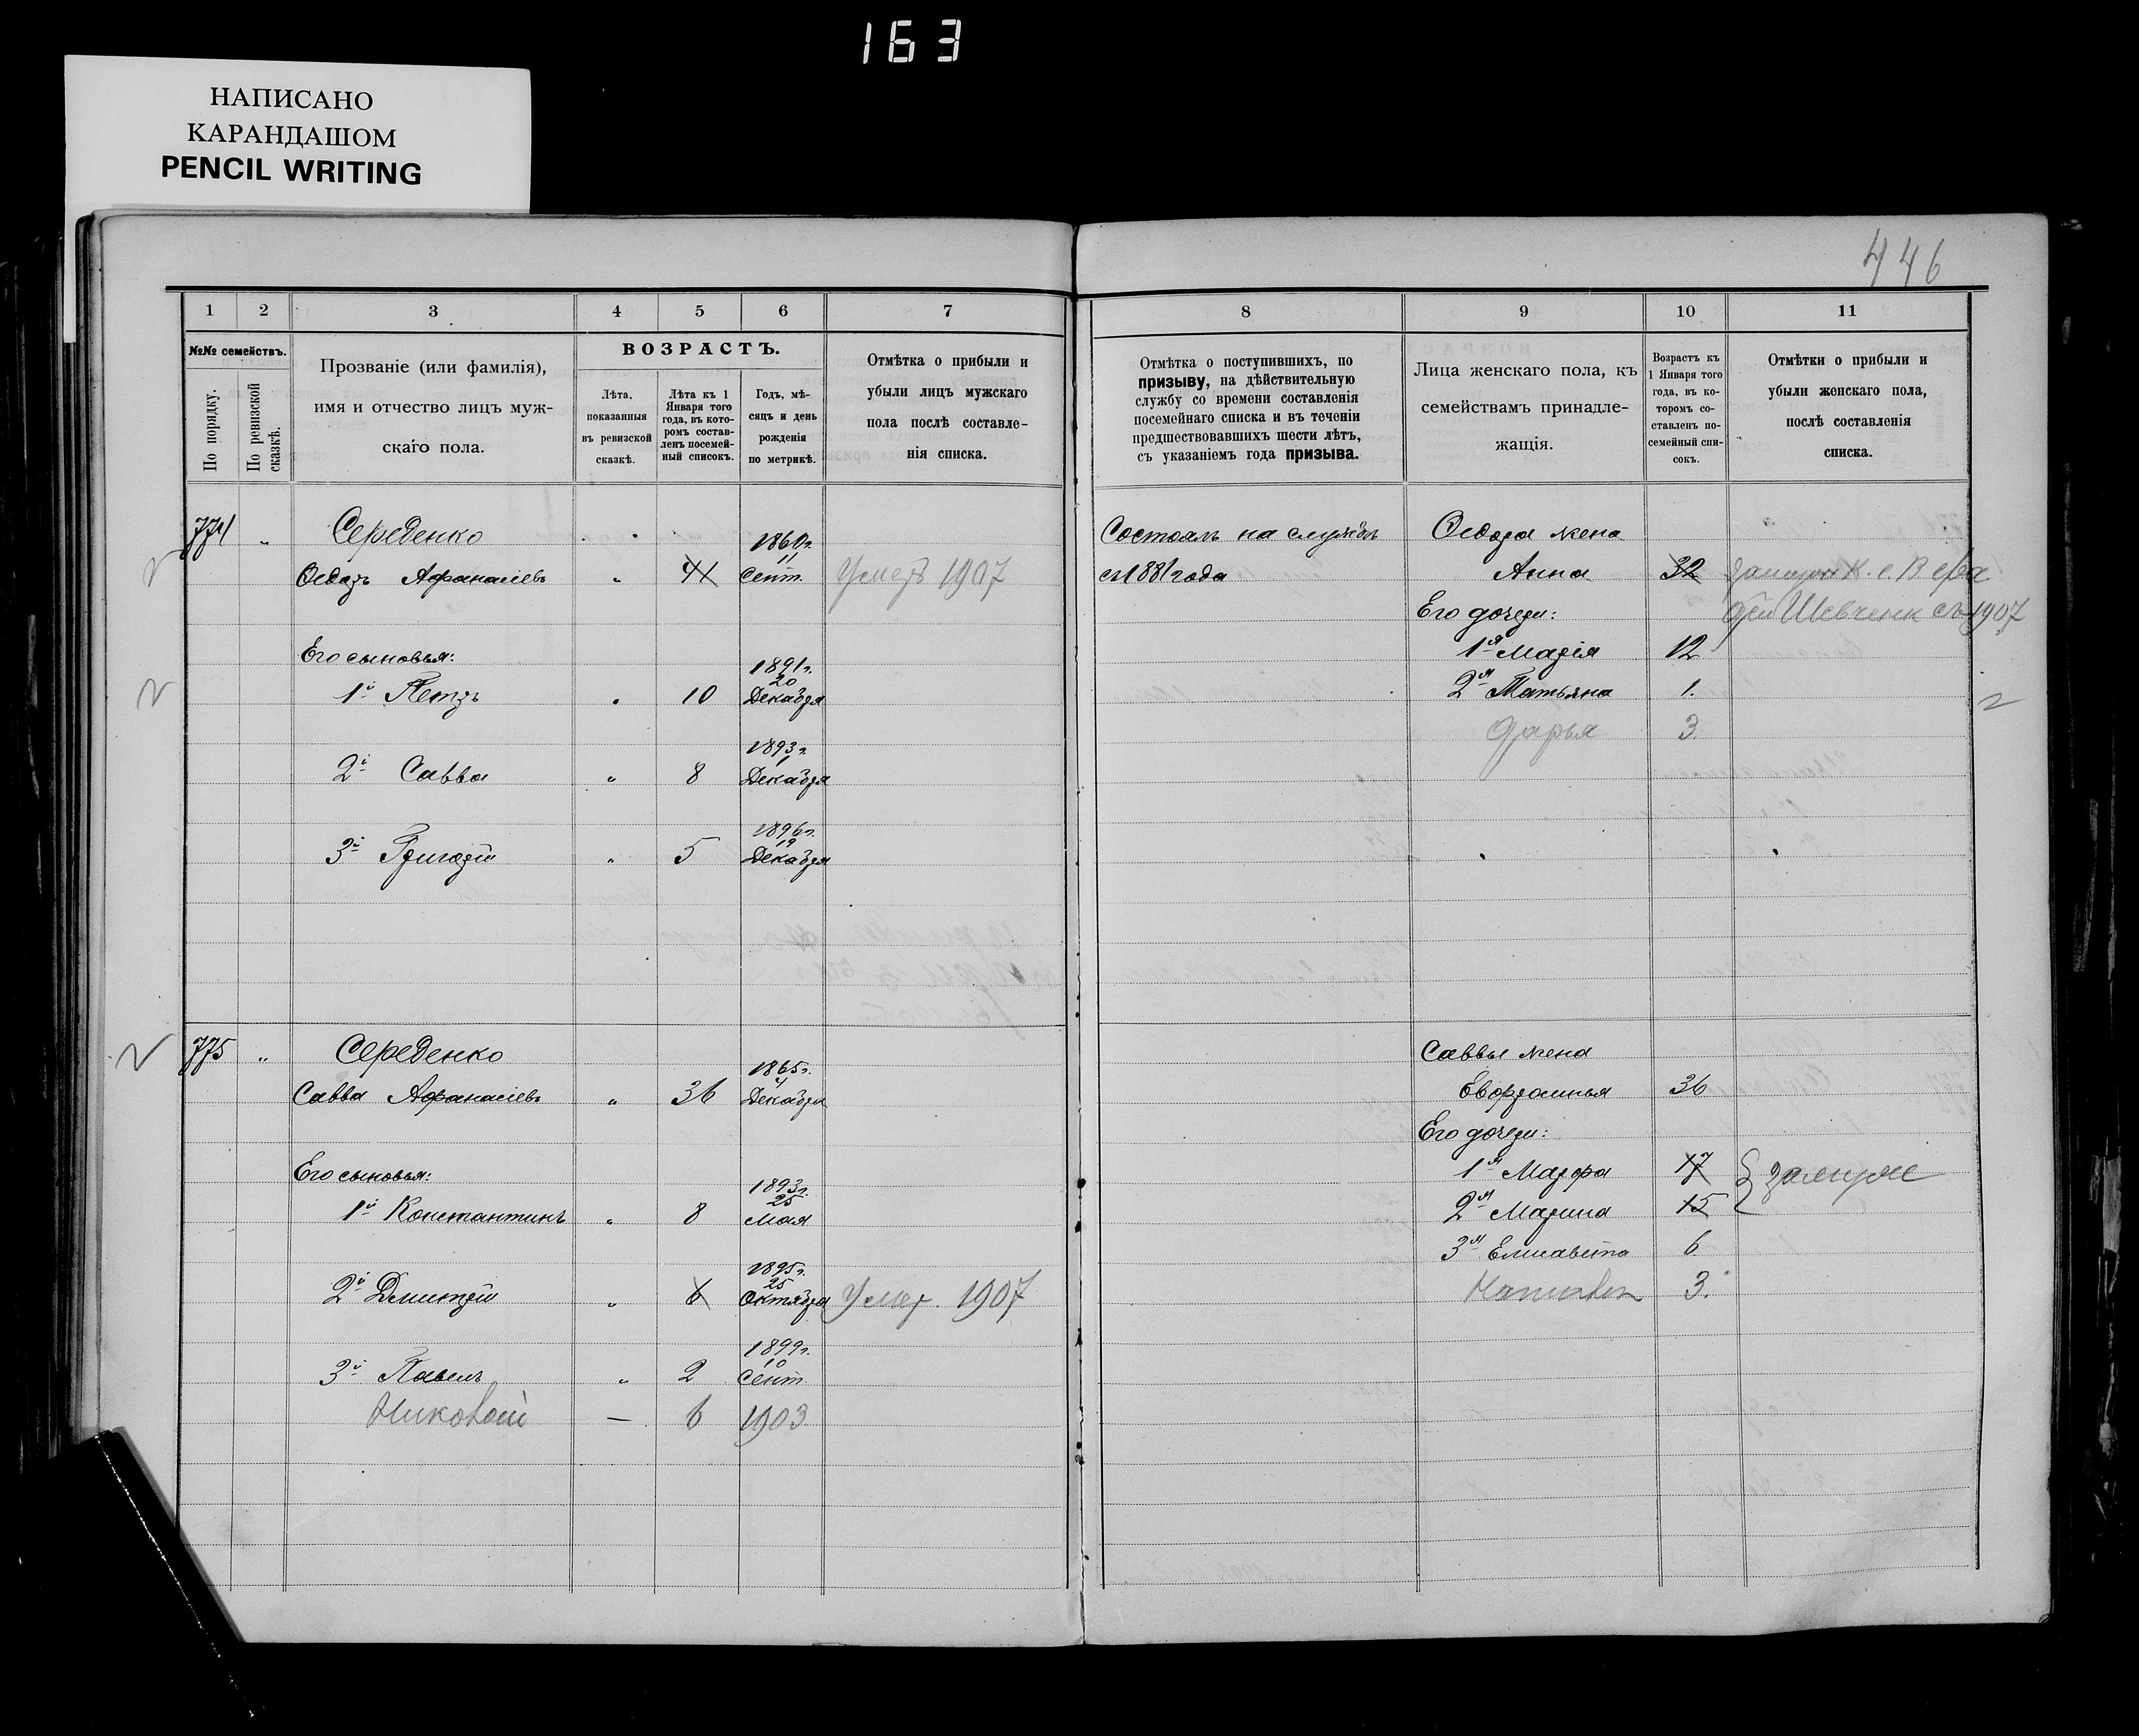 163
НАПИСАНО
КАРАНДАШОМ
PENCIL WRITING
446
1 2 3 4 5 6 7
№№ семействъ.
По порядку.
По ревизской сказкѣ.
Прозваніе (или фамилія),
имя и отчество лицъ муж-
скаго пола.
ВОЗРАСТЪ.
Лѣта,
показанныя
въ ревизской
сказкѣ.
Лѣта къ 1
Января того
года, въ кото-
ромъ состав-
ленъ посемей-
ный списокъ.
Годъ, мѣ-
сяцъ и день
рожденія
по метрикѣ.
Отмѣтка о прибыли и
убыли лицъ мужскаго
пола послѣ составле-
нія списка.
8 9 10 11
Отмѣтка о поступившихъ, по
призыву, на дѣйствительную
службу со времени составленія
посемейнаго списка и въ теченіи
предшествовавшихъ шести лѣтъ,
съ указаніемъ года призыва.
Лица женскаго пола, къ
семействамъ принадле-
жащія.
Возрастъ къ
1 Января того
года, въ ко-
торомъ со-
ставленъ по-
семейный спи-
сокъ.
Отмѣтки о прибыли и
убыли женскаго пола,
послѣ составленія
списка.
774 „ Середенко 1860г.
Ѳедоръ Афанасіевъ „ 41 11 Сент. Умеръ 1907
Его сыновья:
1й Петръ „ 10 1891г. 20 Декабря
2й Савва „ 8 1893г. 1 Декабря
3й Григорій „ 5 1896г. 19 Декабря
Состоялъ на службѣ
съ 1881 года
Ѳедора жена
Анна 32
Его дочери:
Шевченк съ 1907
1я Марія 12
2я Татьяна 1.
Дарья 3.
775 „ Середенко
Савва Афанасіевъ „ 36 1865г. 4 Декабря
Его сыновья:
1й Константинъ „ 8 1893г. 25 Мая
2й Дмитрій „ 6 1895г. 25 Октября Умер. 1907
3й Павелъ „ 2 1899г. 10 Сент.
Николай — 6 1903
Саввы жена
Евфросинья 36
Его дочери:
1я Марфа 17 замуже
2я Марина 15
3я Елисавета 6
3.